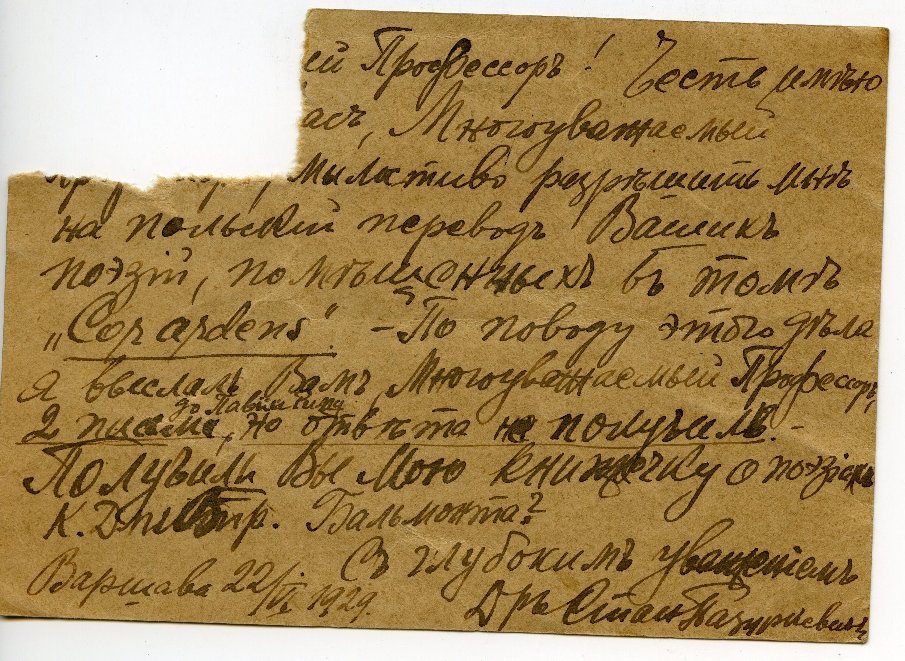 ей Профессоръ! Честь имѣю
асъ, Многоуважаемый
милостиво разрѣшить мнѣ
на польскій переводъ Вашихъ
поэзій, помѣщенныхъ въ томѣ
„Cor ardens". – По поводу этого дѣла
я выслалъ Вамъ, Многоуважаемый Профессоръ,
до Павіи
2 письма, но отвѣта не получилъ. –
Получили Вы мою книжечку о поэзіяхъ
К. Бальмонта?
Съ глубокимъ уваженіемъ
Варшава 22/VI 1929.
Дръ Стан Пазуркевичъ